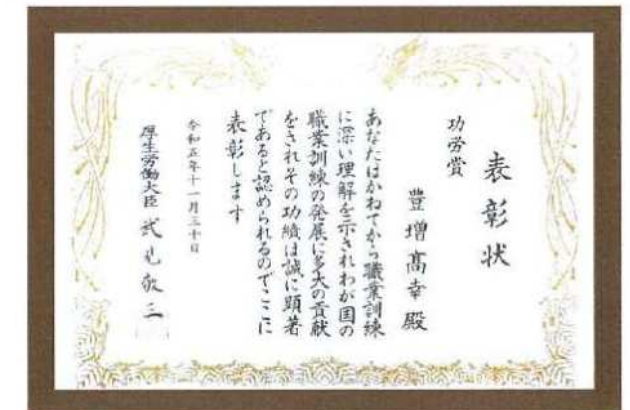 表彰状
功労賞
豊増髙幸殿
あなたはかねてから職業訓練
に深い理解を示されわが国の
職業訓練の発展に多大の貢献
をされその功績は誠に顕著
であると認められるのでここに
表彰します
令和五年十一月三十日
厚生労働大臣 武見敬三